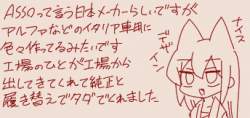 ASSOって言う日本メーカーらしいですが
アルファなどのイタリア車用に
色々作ってるみたいです
工場のひとが工場から
出してきてくれて純正と
履き替えでタダでくれました
ナイス
デザイン